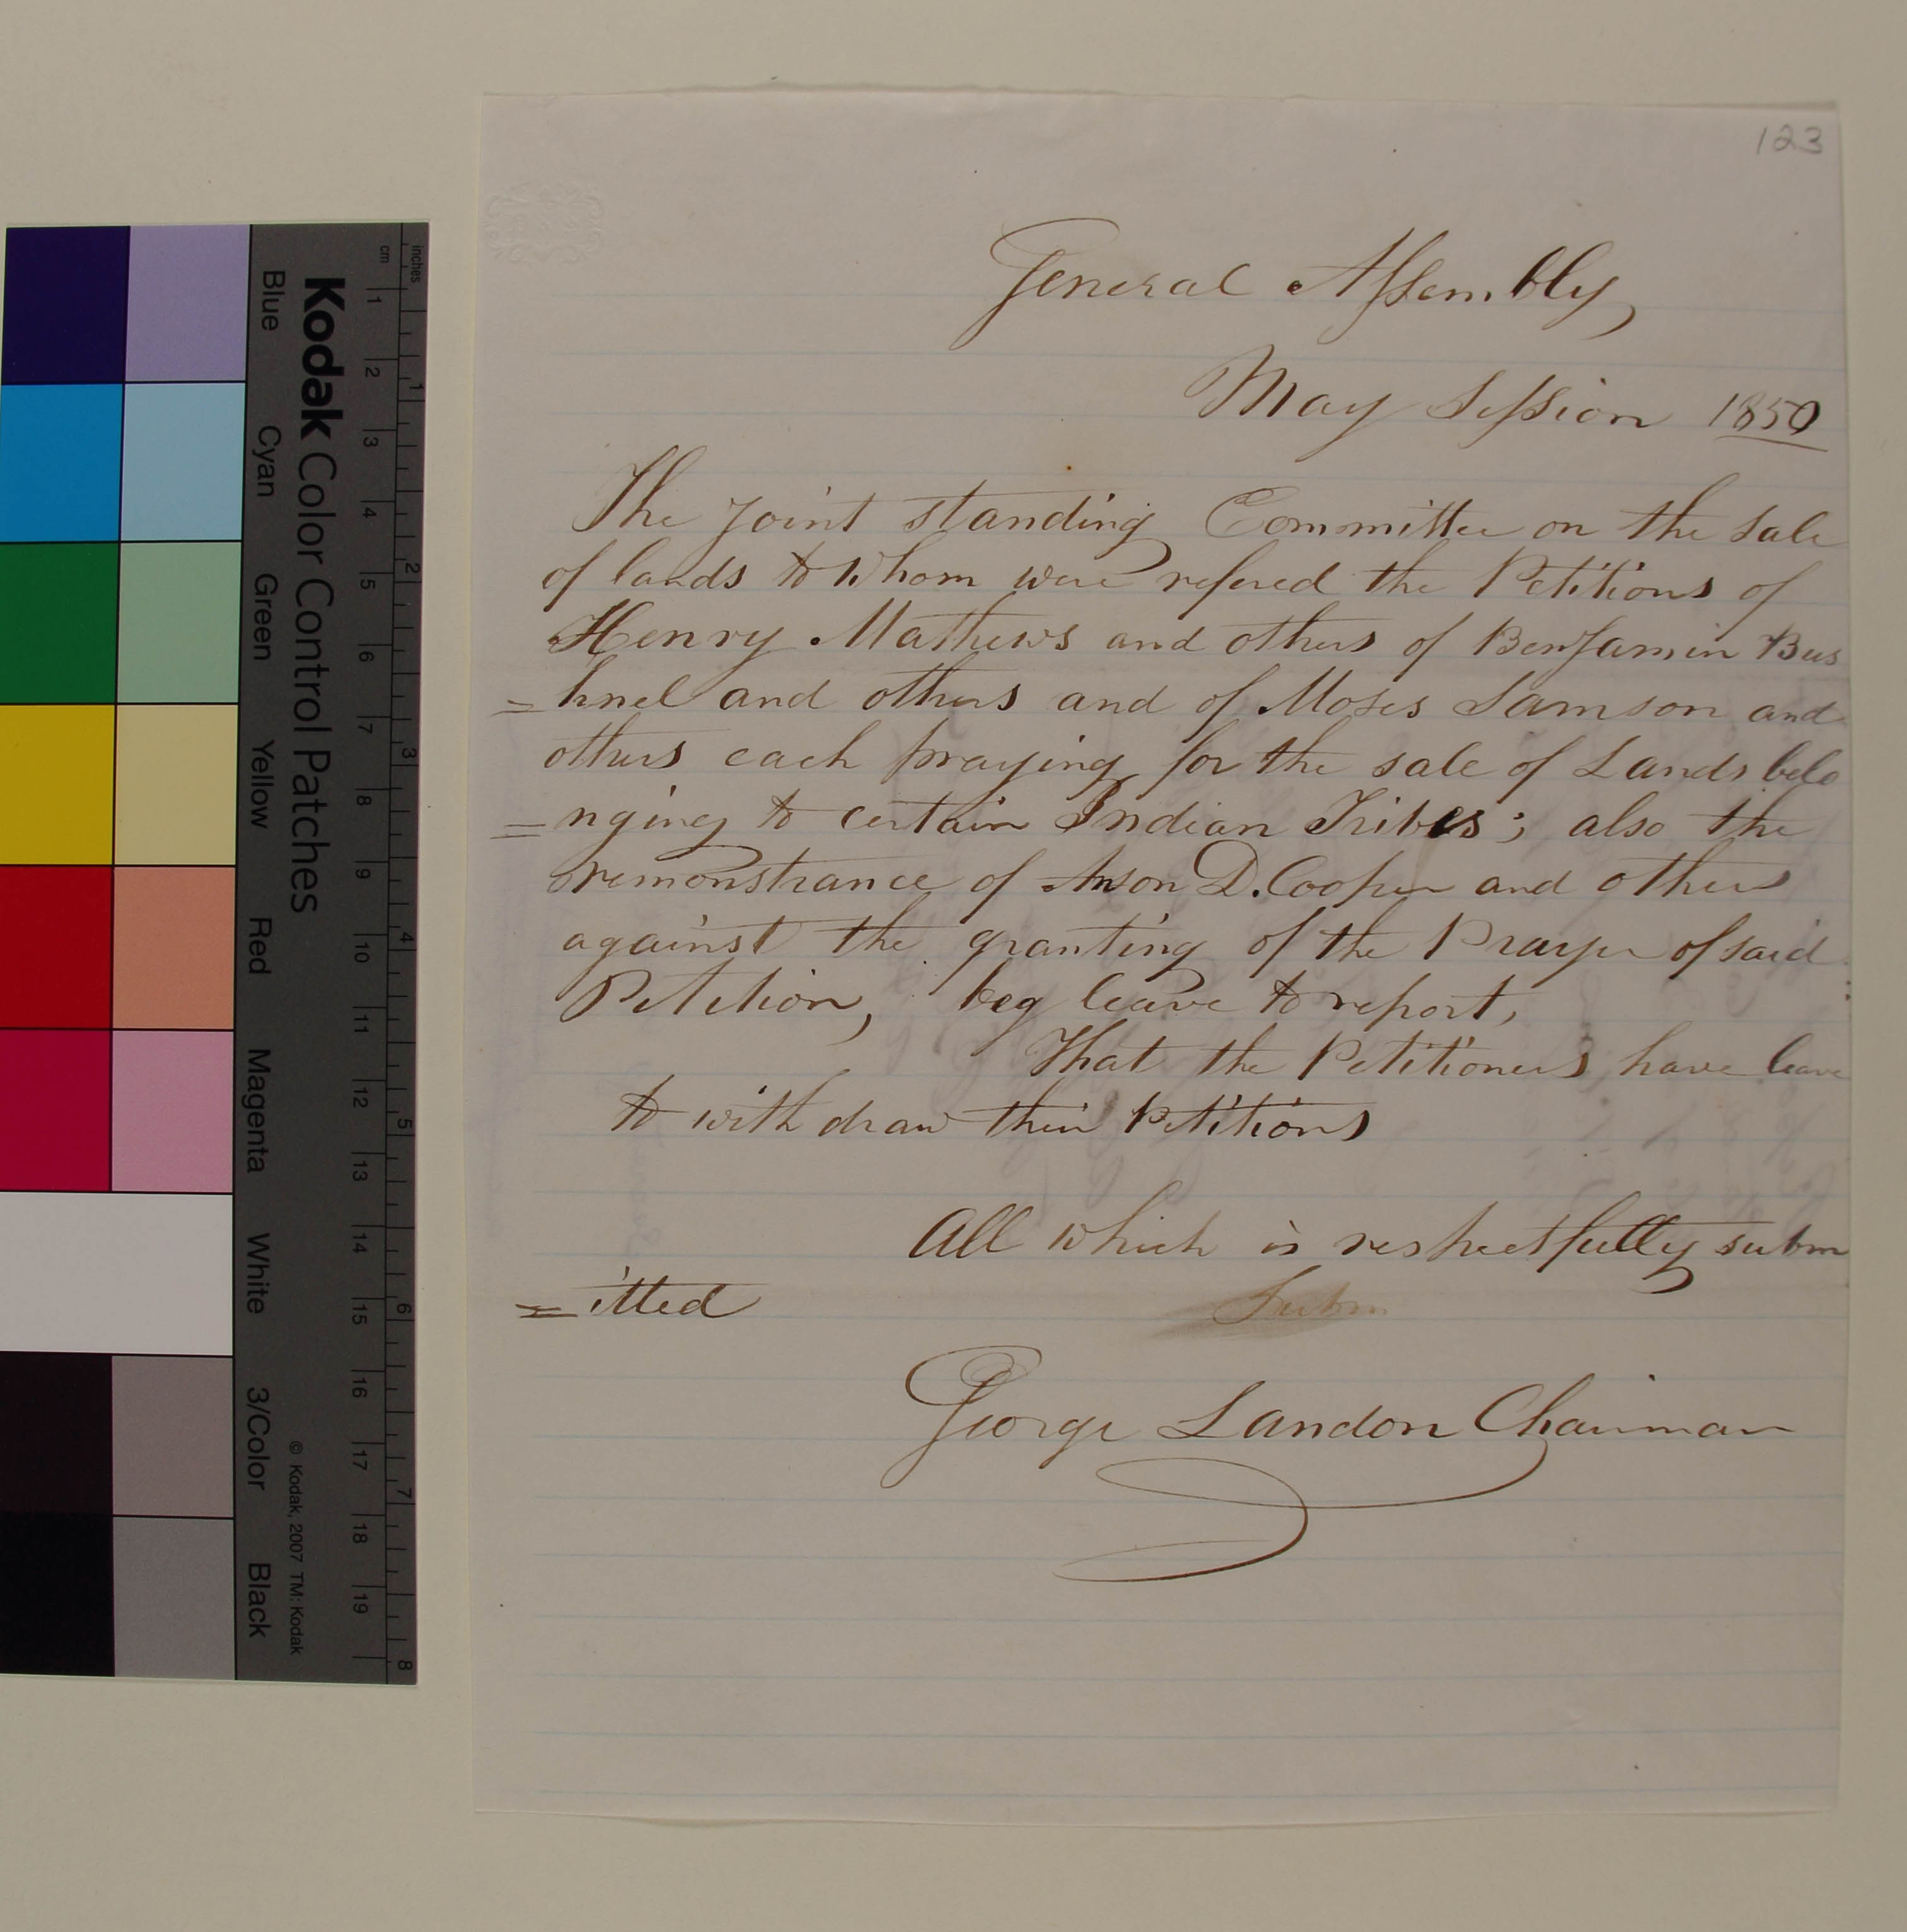 123
General Assembly,
May Session 1850
The joint standing Committee on the sale
of lands to whom were refered the Petitions of
Henry Mathews and others of Benjamin Bus
=hnel and others and of Moses Samson and
others each praying for the sale of Lands belo
=nging to certain Indian Tribes; also the
remonstrance of Anson D. Cooper and others
against the granting of the Prayer of said
Petition, beg leave to report,
That the Petitioners have leave
to withdraw their Petitions
All which is respectfully subm
=itted
Subm
George Landon Chairman
Kodak Color Control Patches
Blue Cyan Green Yellow Red Magenta White 3/Color Black
© Kodak, 2007 TM: Kodak
inches 1 2 3 4 5 6 7 8
cm 1 2 3 4 5 6 7 8 9 10 11 12 13 14 15 16 17 18 19